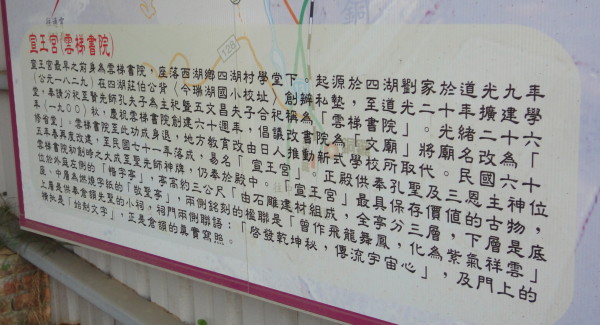 宣王宮(雲梯書院)
宣王宮最早之前身為雲梯書院，座落西湖鄉四湖村學堂下。起源於四湖劉家於道光九年
(公元一八二九)在四湖莊伯公背(今瑞湖國小校址)創辦私塾，至道光二十年擴建學
堂，奉請分祀至聖先師孔夫子為主祀暨五文昌夫子合祀稱為「雲梯書院」。光緒二十六
年(一九00)秋，慶祝雲梯書院創建六十週年，倡議改書院為「文廟」將廟名改為「
修省堂」。雲梯書院至此功成身退，地方教育改由日人推動新式學校所取代。民國六十
五年春再度改建，至民國七十一年落成，易名「宣王宮」。正殿供奉孔聖及三恩主神位，
雲梯書院初創時之大成至聖先師神牌，仍奉於殿中。「宣王宮」最具保存價值的古物，
位於外庭左側的「惜字亭」，亭高約三公尺「由石雕建材組成，全亭分三層，下層是底
座、中層為燃燒字紙的「敬聖亭」，兩側銘刻的楹聯是「留作飛龍舞鳳，化為紫氣祥雲」
上層是供奉倉頡先聖的小祠，祠門兩側聯語：「啓發乾坤秘，傳流宇宙心」，及門上的
橫批是「始制文字」，正是倉頡的真實寫照。
128
銅